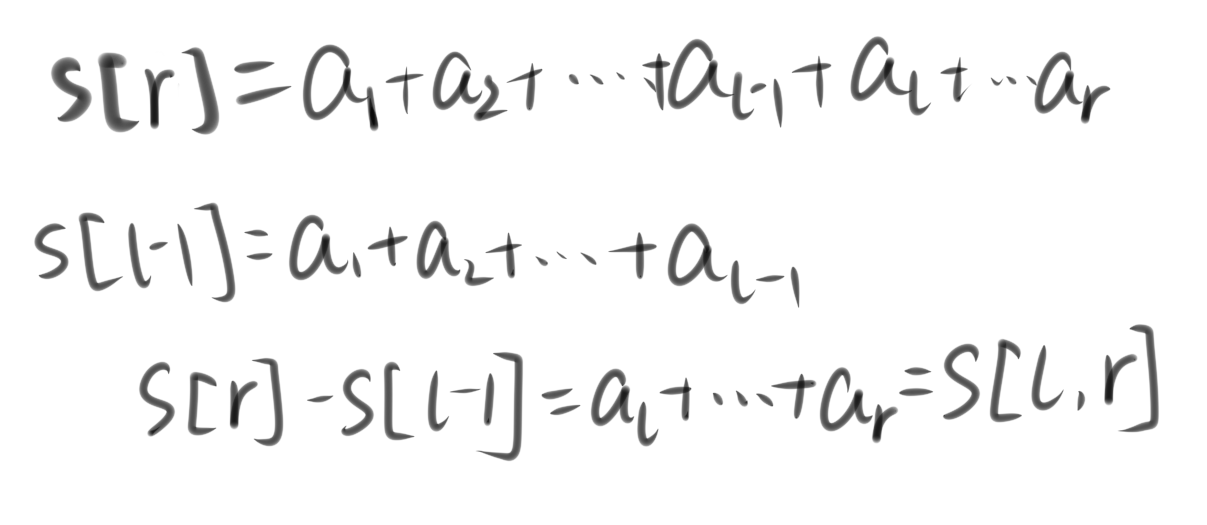 s[r]=a₁+a₂+…+aₗ₋₁+aₗ+…aᵣ
s[l-1]=a₁+a₂+…+aₗ₋₁
s[r]-s[l-1]=aₗ+…+aᵣ=s[l,r]